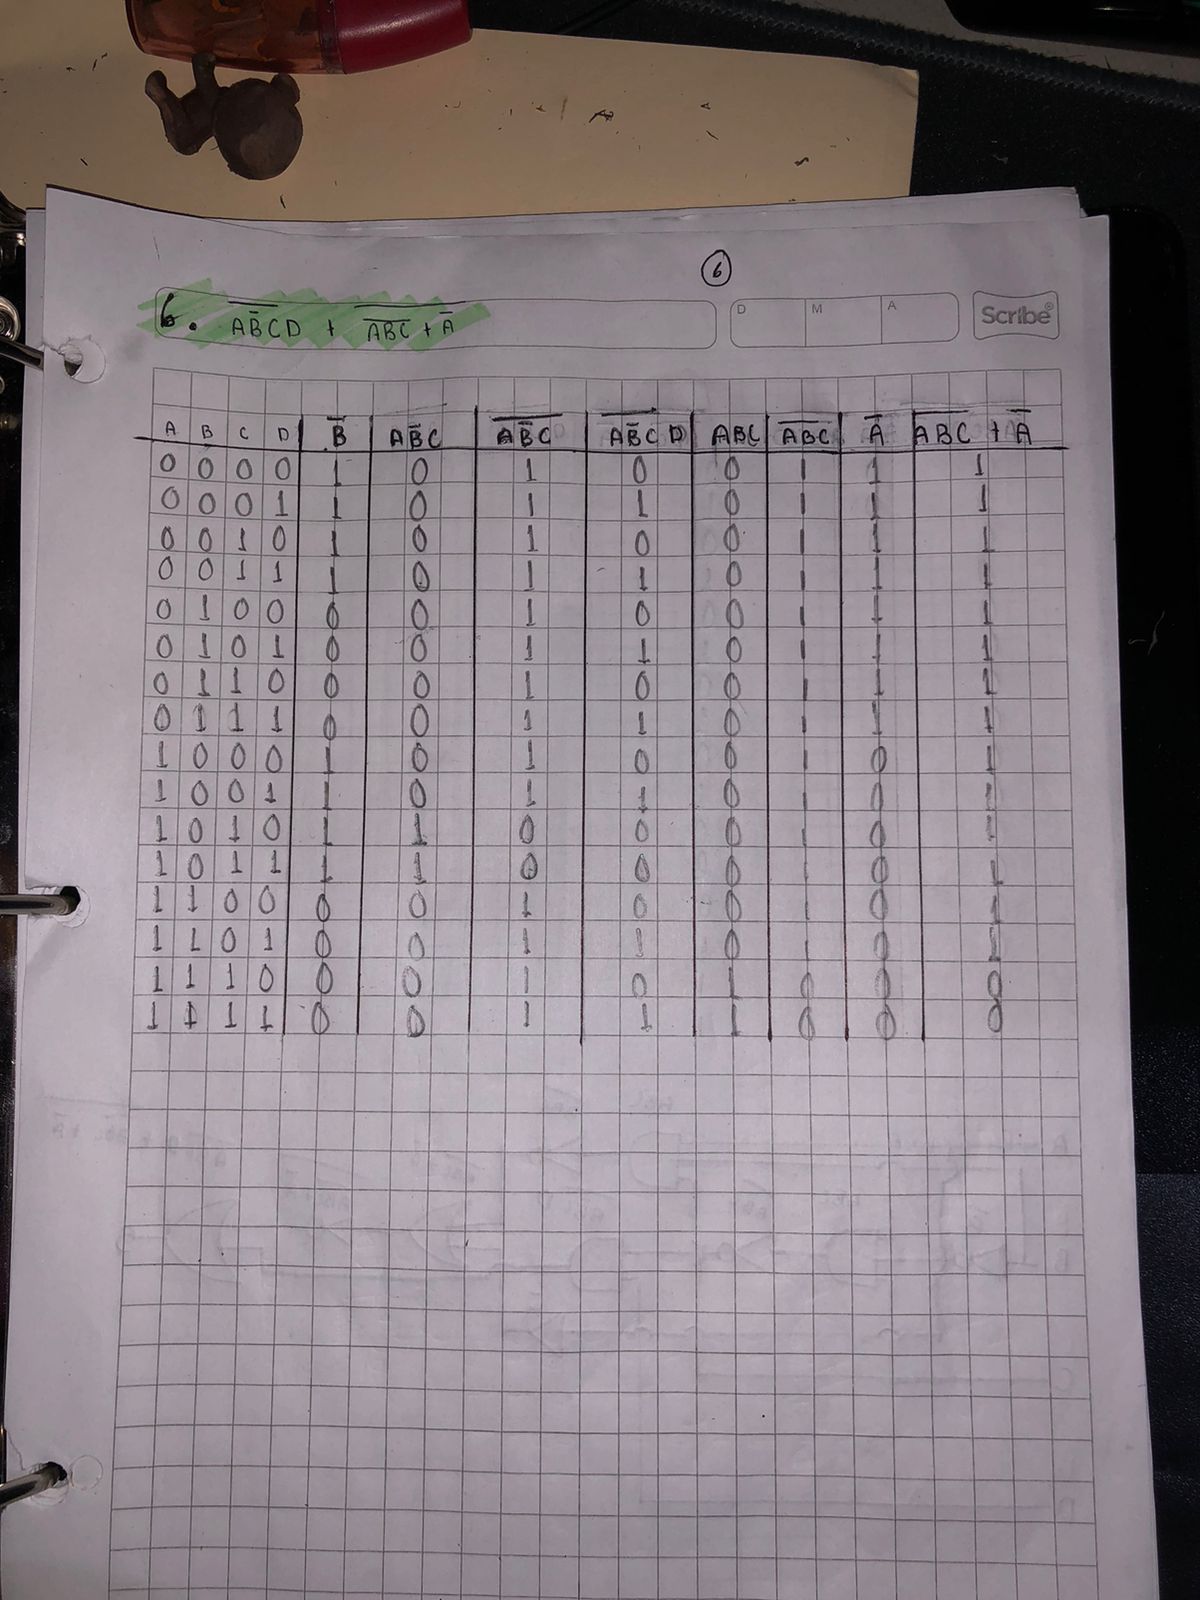 6
6. \overline{A\overline{B}C}D + \overline{\overline{ABC} + \overline{A}}
D M A Scribe®
A B C D B̅ AB̅C \overline{AB̅C} \overline{AB̅C} D ABC \overline{ABC} A̅ \overline{ABC} + A̅
0 0 0 0 1 0 1 0 0 1 1 1
0 0 0 1 1 0 1 1 0 1 1 1
0 0 1 0 1 0 1 0 0 1 1 1
0 0 1 1 1 0 1 1 0 1 1 1
0 1 0 0 0 0 1 0 0 1 1 1
0 1 0 1 0 0 1 1 0 1 1 1
0 1 1 0 0 0 1 0 0 1 1 1
0 1 1 1 0 0 1 1 0 1 1 1
1 0 0 0 1 0 1 0 0 1 0 1
1 0 0 1 1 0 1 1 0 1 0 1
1 0 1 0 1 1 0 0 0 1 0 1
1 0 1 1 1 1 0 0 0 1 0 1
1 1 0 0 0 0 1 0 0 1 0 1
1 1 0 1 0 0 1 1 0 1 0 1
1 1 1 0 0 0 1 0 1 0 0 0
1 1 1 1 0 0 1 1 1 0 0 0